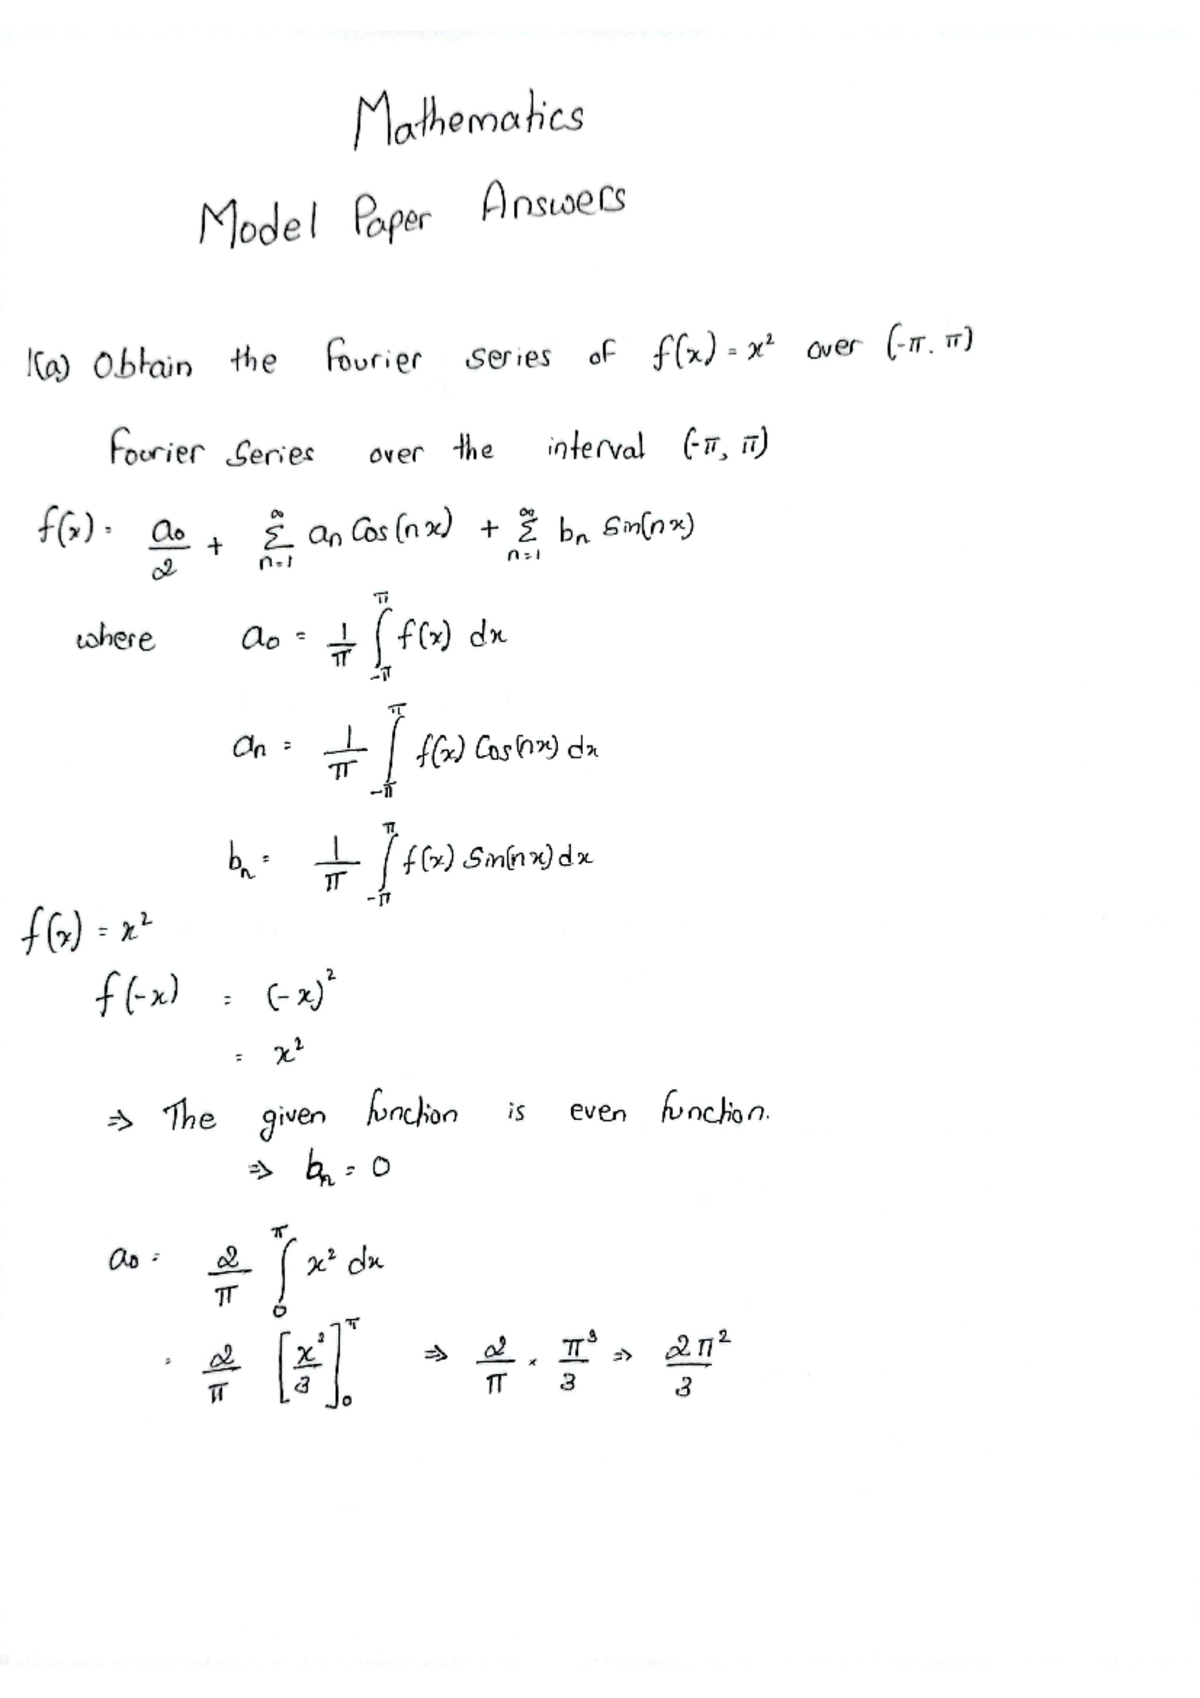 Mathematics
Model Paper Answers
1(a) Obtain the Fourier series of f(x) = x² over (-π. π)
Fourier Series over the interval (-π, π)
f(x) = a₀/2 + Σ_{n=1}^{∞} aₙ Cos(nx) + Σ_{n=1}^{∞} bₙ Sin(nx)
where a₀ = 1/π ∫_{-π}^{π} f(x) dx
aₙ = 1/π ∫_{-π}^{π} f(x) Cos(nx) dx
bₙ = 1/π ∫_{-π}^{π} f(x) Sin(nx) dx
f(x) = x²
f(-x) = (-x)²
= x²
⇒ The given function is even function.
⇒ bₙ = 0
a₀ = 2/π ∫_{0}^{π} x² dx
= 2/π [x³/3]_{0}^{π} ⇒ 2/π × π³/3 ⇒ 2π²/3